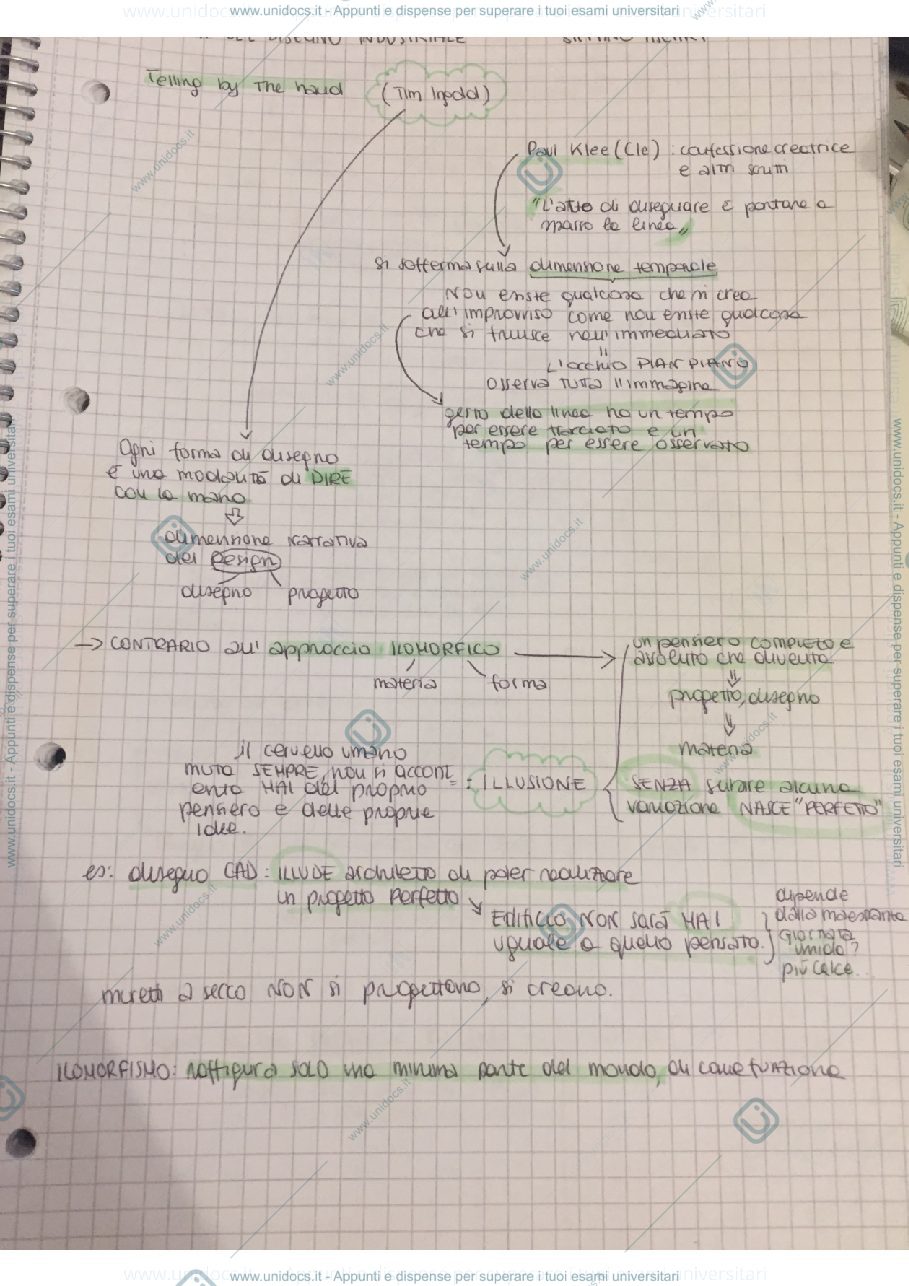 www.unidocs.it - Appunti e dispense per superare i tuoi esami universitari
DEL DISEGNO INDUSTRIALE
Telling by The hand (Tim Ingold)
Paul Klee (Cle) : confessione creatrice
e altri scritti
"L'atto di disegnare è portare a
spasso la linea"
si sofferma sulla dimensione temporale
Non esiste qualcosa che si crea
all'improvviso come non esiste qualcosa
che si fruisce nell'immediato
=
L'occhio PIAN PIANO
osserva tutta l'immagine
gesto della linea ha un tempo
per essere tracciato e un
tempo per essere osservato
Ogni forma di disegno
è una modalità di DIRE
con la mano
dimensione narrativa
del Design
disegno progetto
→ CONTRARIO all'approccio ILOMORFICO
materia forma
un pensiero completo e
assoluto che diventa
progetto, disegno
materia
SENZA subire alcuna
variazione NASCE "PERFETTO"
il cervello umano
muta SEMPRE, non si accont
enta MAI del proprio
pensiero e delle proprie
idee.
= : ILLUSIONE
es: disegno CAD : ILLUDE architetto di poter realizzare
un progetto perfetto
Edificio NON sarà MAI
uguale a quello pensato.
dipende
dalla maestranza
Giornata
umida?
più calce..
muretti a secco NON si progettano, si creano.
ILOMORFISMO: raffigura solo una minima parte del mondo, di come funziona
www.unidocs.it - Appunti e dispense per superare i tuoi esami universitari